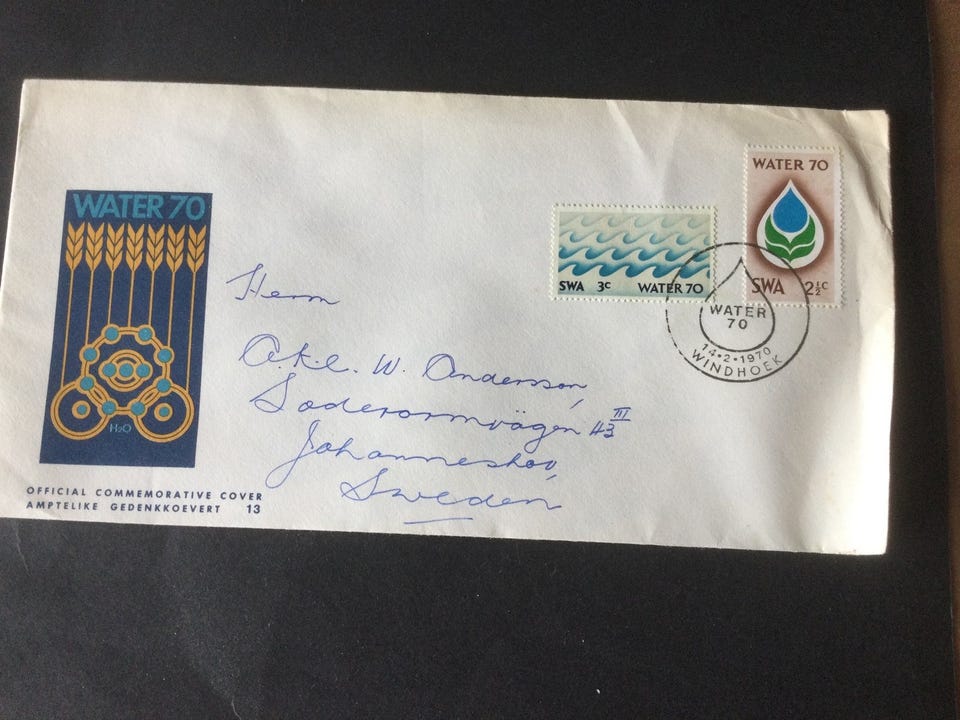 WATER 70
H2O
OFFICIAL COMMEMORATIVE COVER
AMPTELIKE GEDENKKOEVERT 13
SWA 3c WATER 70
WATER 70
SWA 2½c
WATER
70
14·2·1970
WINDHOEK
Herrn
W. Andersson,
43 III
Johanneshov,
Sweden